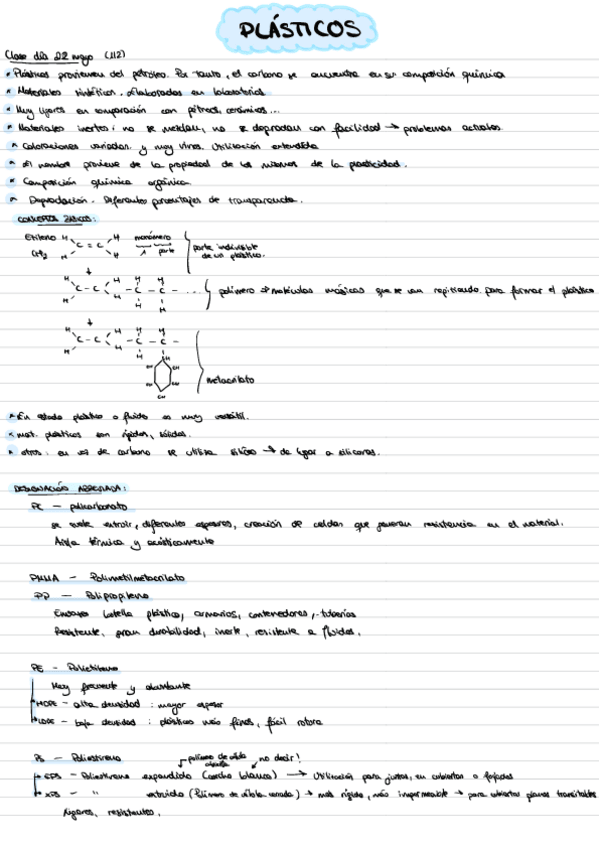 PLÁSTICOS
Clase día 22 mayo (J12)
* Plásticos provienen del petróleo. Por tanto, el carbono se encuentra en su composición química
* Materiales sintéticos. Elaborados en laboratorios
* Muy ligeros en comparación con pétreos, cerámicos...
* Materiales inertes: no se mezclan, no se degradan con facilidad → problemas actuales
* Coloraciones variadas y muy vivas. Utilización extendida
* El nombre proviene de la propiedad de los mismos de la plasticidad.
* Composición química orgánica
* Degradación. Diferentes porcentajes de transparencia.
CONCEPTOS BÁSICOS:
Etileno H H monómero parte indivisible
CH2 C = C 1 parte de un plástico.
H H
H H H H
C - C - C - C - ... polímero → moléculas básicas que se van repitiendo para formar el plástico
H H H H
H H H H
C - C - C - C -
H H H
CH
metacrilato
* En estado plástico o fluido es muy versátil.
* mat. plásticos son rígidos, sólidos.
* otros: en vez de carbono se utiliza silicio → da lugar a siliconas.
DESIGNACIÓN ABREVIADA:
PC - policarbonato
se suele extruir, diferentes espesores, creación de celdas que generan resistencia en el material.
Aísla térmica y acústicamente
PMMA - Polimetilmetacrilato
PP - Polipropileno
Envases botella plástico, armarios, contenedores, tuberías
Resistente, gran durabilidad, inerte, resistente a fluidos.
PE - Polietileno
Muy frecuente y abundante
HDPE - alta densidad: mayor espesor
LDPE - baja densidad: plásticos más finos, fácil rotura
PS - Poliestireno polímero de célula no decir!
EPS - Poliestireno expandido (corcho blanco) → Utilización para juntas, en cubiertas o fachadas
XPS - " extruido (Polímero de célula cerrada) → más rígido, más impermeable → para cubiertas planas transitables
ligeros, resistentes.